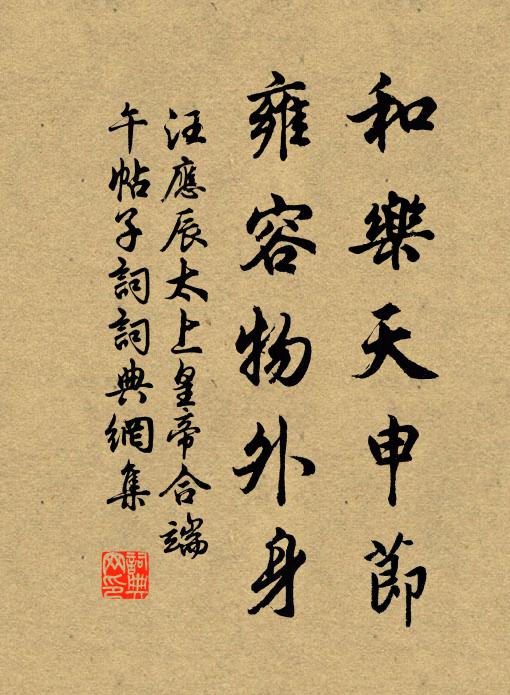 和樂天申節
雍容物外身
汪應辰太上皇帝合端
午帖子詞詞典網集
詞典
网印